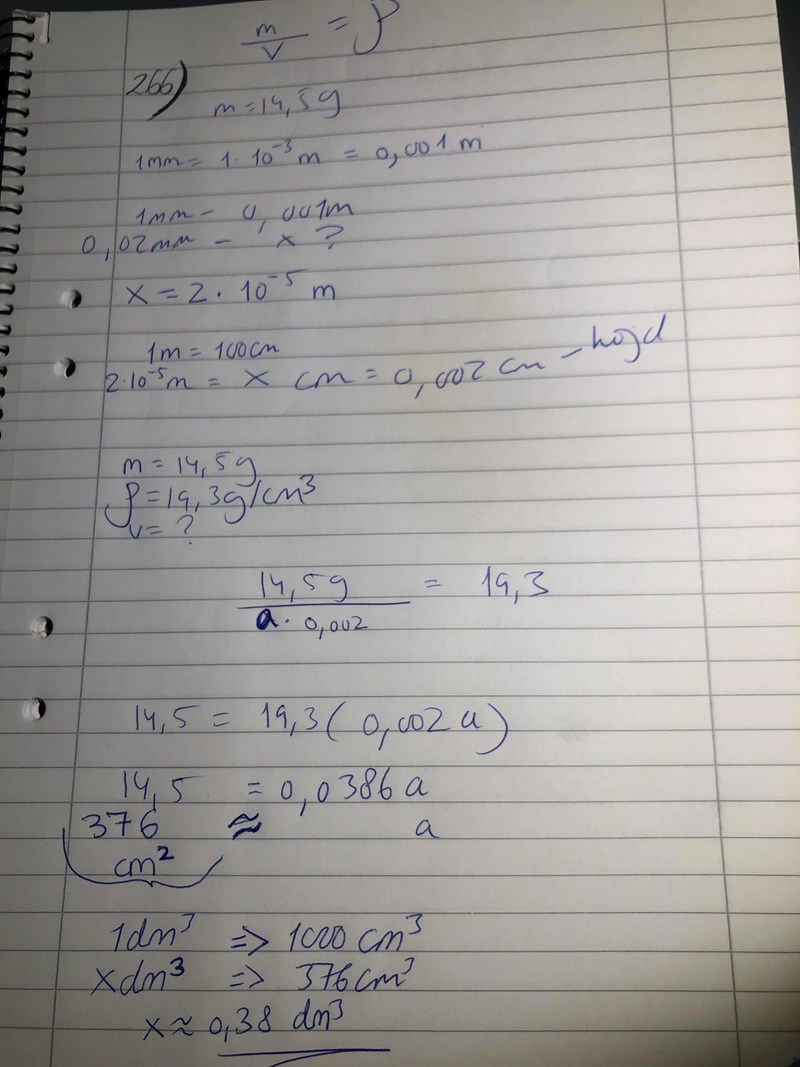 m/V = ρ
266)
m = 14,5g
1mm = 1·10⁻³ m = 0,001 m
1mm - 0,001m
0,02mm - x ?
x = 2 · 10⁻⁵ m
1m = 100cm
2·10⁻⁵m = x cm = 0,002 cm - höjd
m = 14,5g
ρ = 19,3g/cm³
v = ?
14,5g / a · 0,002 = 19,3
14,5 = 19,3(0,002a)
14,5 = 0,0386a
376 ≈ a
cm²
1dm³ => 1000 cm³
xdm³ => 376cm³
x ≈ 0,38 dm³